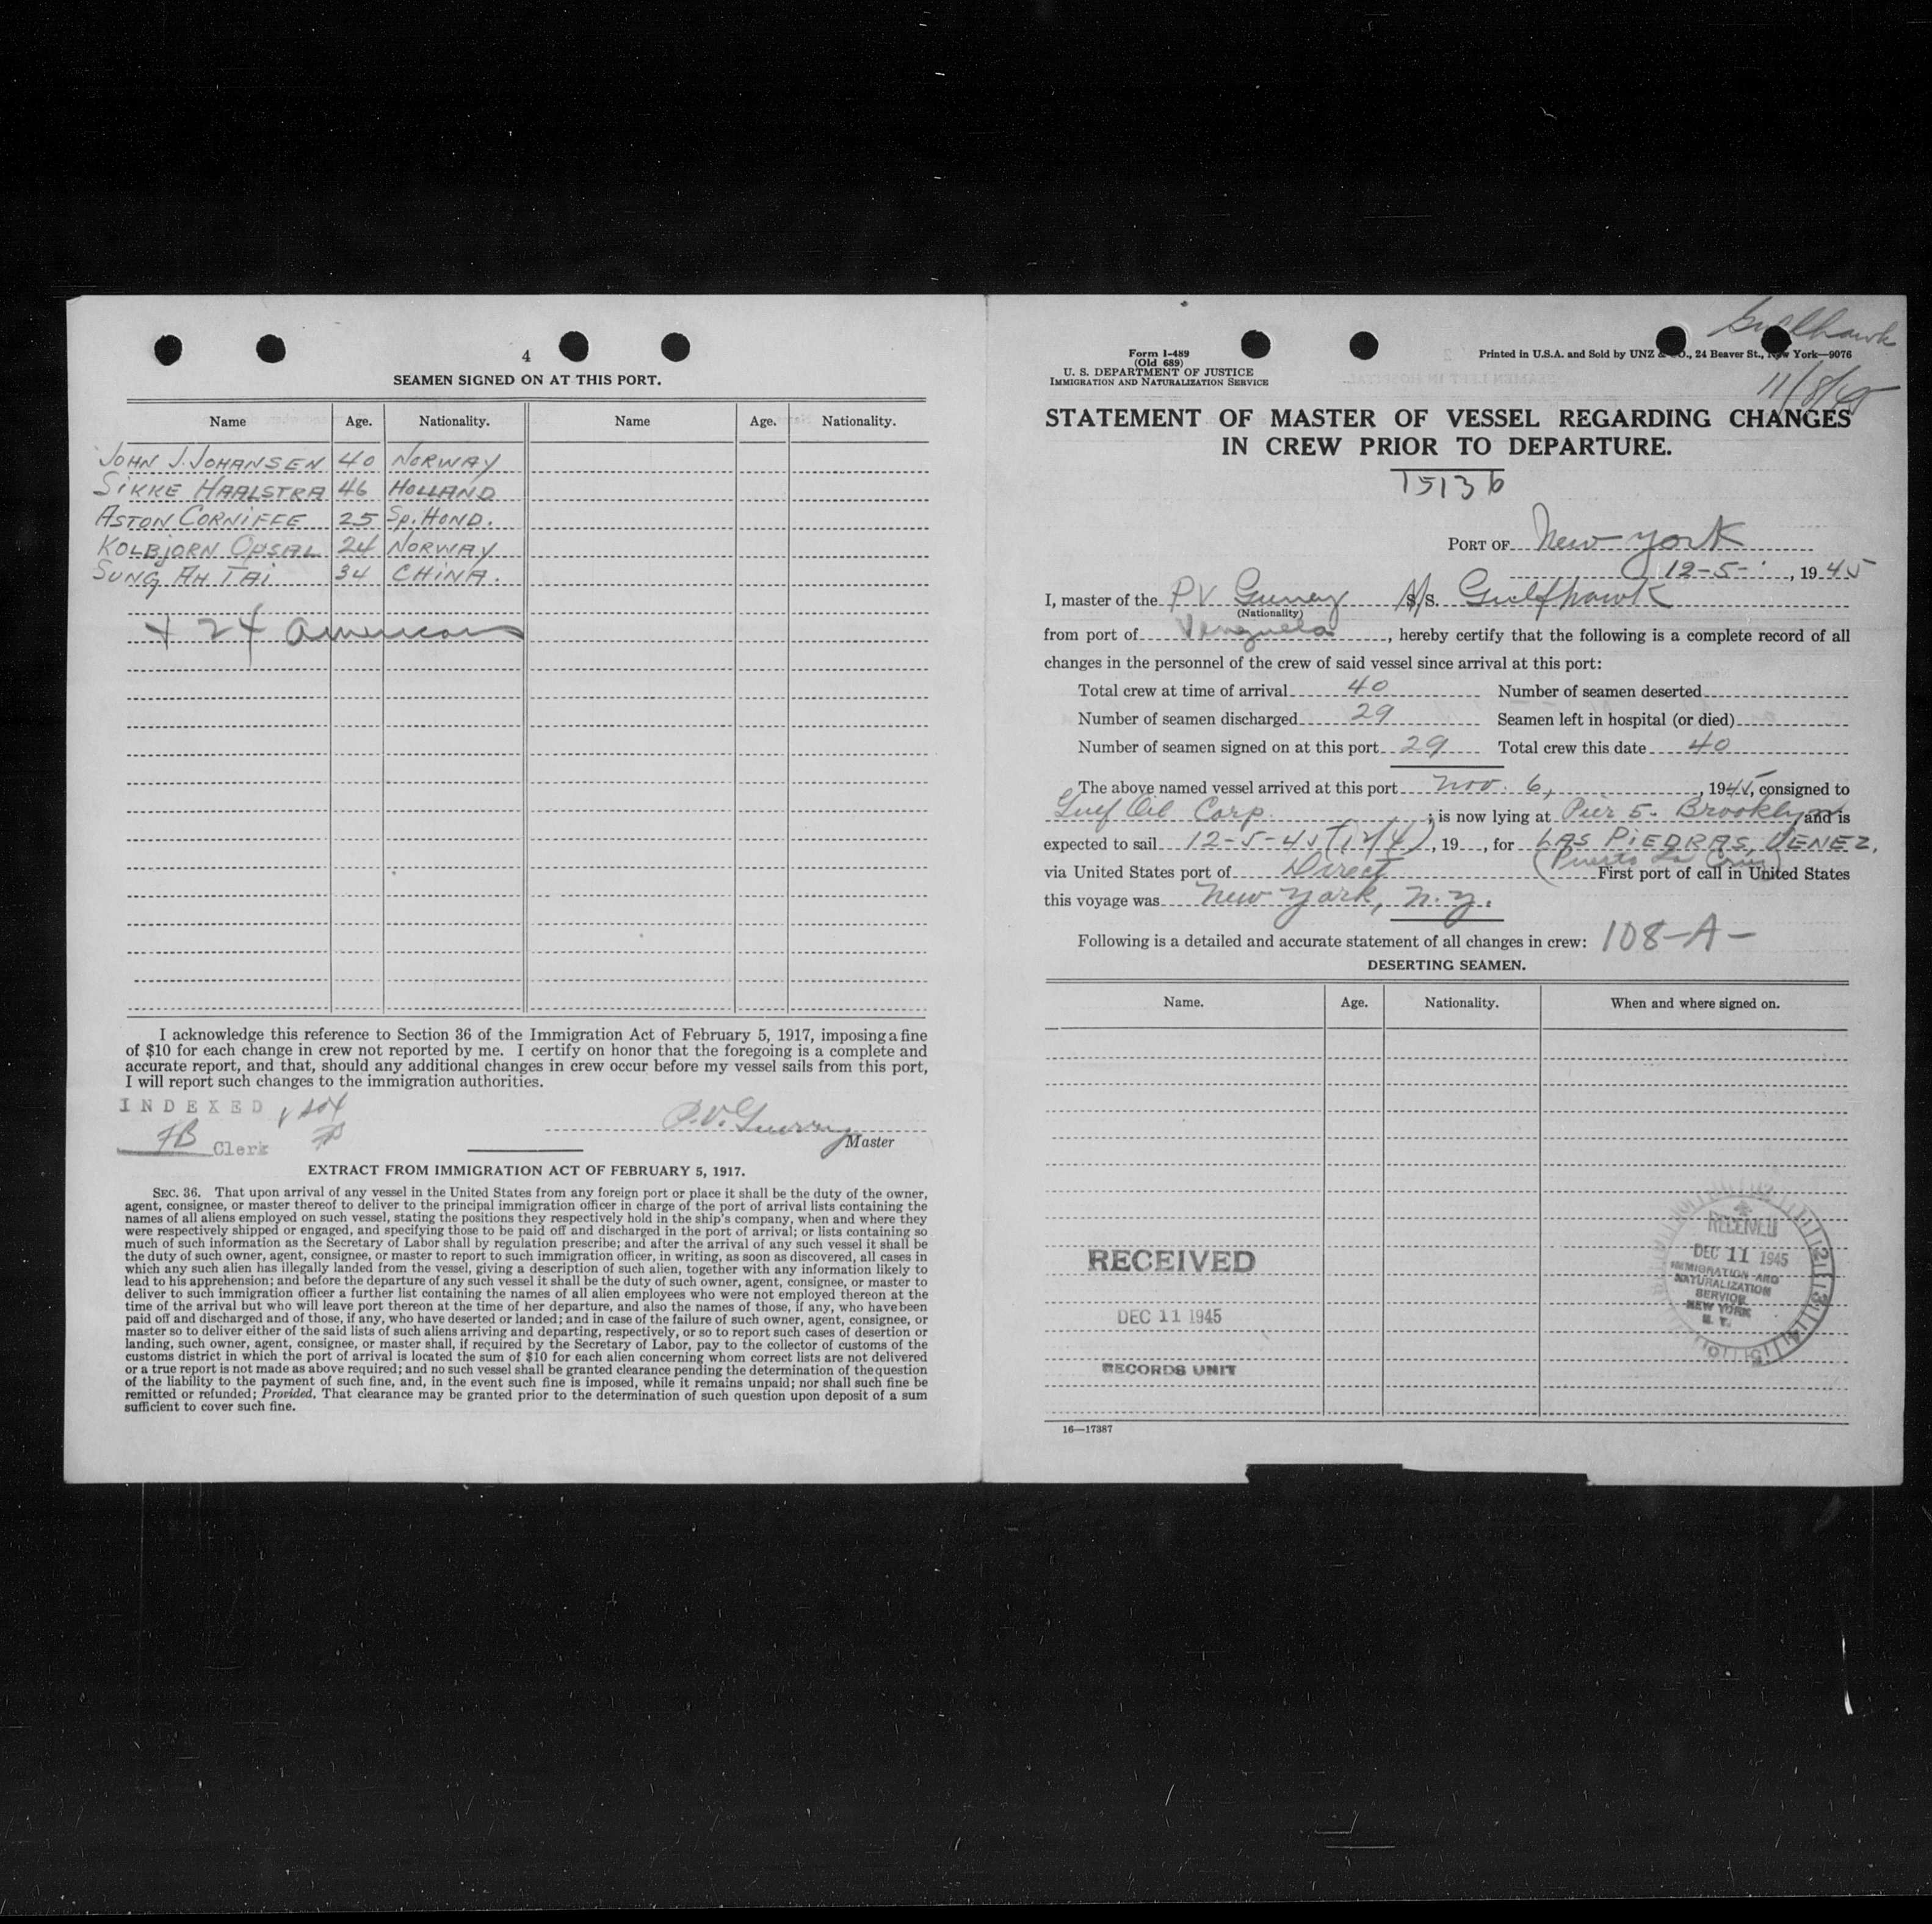 4
SEAMEN SIGNED ON AT THIS PORT.
Name Age. Nationality. Name Age. Nationality.
JOHN J. JOHANSEN 40 NORWAY
SIKKE HAALSTRA 46 HOLLAND
ASTON CORNIFFE 25 Sp. HOND.
KOLBJORN OPSAL 24 NORWAY
SUNG AH TAI 34 CHINA.
+ 24 Americans
I acknowledge this reference to Section 36 of the Immigration Act of February 5, 1917, imposing a fine
of $10 for each change in crew not reported by me. I certify on honor that the foregoing is a complete and
accurate report, and that, should any additional changes in crew occur before my vessel sails from this port,
I will report such changes to the immigration authorities.
INDEXED
FB Clerk
P.V. Gurney
Master
EXTRACT FROM IMMIGRATION ACT OF FEBRUARY 5, 1917.
SEC. 36. That upon arrival of any vessel in the United States from any foreign port or place it shall be the duty of the owner,
agent, consignee, or master thereof to deliver to the principal immigration officer in charge of the port of arrival lists containing the
names of all aliens employed on such vessel, stating the positions they respectively hold in the ship's company, when and where they
were respectively shipped or engaged, and specifying those to be paid off and discharged in the port of arrival; or lists containing so
much of such information as the Secretary of Labor shall by regulation prescribe; and after the arrival of any such vessel it shall be
the duty of such owner, agent, consignee, or master to report to such immigration officer, in writing, as soon as discovered, all cases in
which any such alien has illegally landed from the vessel, giving a description of such alien, together with any information likely to
lead to his apprehension; and before the departure of any such vessel it shall be the duty of such owner, agent, consignee, or master to
deliver to such immigration officer a further list containing the names of all alien employees who were not employed thereon at the
time of the arrival but who will leave port thereon at the time of her departure, and also the names of those, if any, who have been
paid off and discharged and of those, if any, who have deserted or landed; and in case of the failure of such owner, agent, consignee, or
master so to deliver either of the said lists of such aliens arriving and departing, respectively, or so to report such cases of desertion or
landing, such owner, agent, consignee, or master shall, if required by the Secretary of Labor, pay to the collector of customs of the
customs district in which the port of arrival is located the sum of $10 for each alien concerning whom correct lists are not delivered
or a true report is not made as above required; and no such vessel shall be granted clearance pending the determination of the question
of the liability to the payment of such fine, and, in the event such fine is imposed, while it remains unpaid; nor shall such fine be
remitted or refunded; Provided, That clearance may be granted prior to the determination of such question upon deposit of a sum
sufficient to cover such fine.
Gulfhawk
11/8/45
Form I-489
(Old 689)
U. S. DEPARTMENT OF JUSTICE
IMMIGRATION AND NATURALIZATION SERVICE
Printed in U.S.A. and Sold by UNZ & CO., 24 Beaver St., New York—9076
STATEMENT OF MASTER OF VESSEL REGARDING CHANGES
IN CREW PRIOR TO DEPARTURE.
15136
PORT OF New York
12-5-, 1945
I, master of the PV Gurney S/S. Gulfhawk
(Nationality)
from port of Venezuela, hereby certify that the following is a complete record of all
changes in the personnel of the crew of said vessel since arrival at this port:
Total crew at time of arrival 40 Number of seamen deserted
Number of seamen discharged 29 Seamen left in hospital (or died)
Number of seamen signed on at this port 29 Total crew this date 40
The above named vessel arrived at this port Nov. 6, , 1945, consigned to
Gulf Oil Corp. ; is now lying at Pier 5. Brooklyn and is
expected to sail 12-5-45 (12/4), 19 , for LAS PIEDRAS, VENEZ,
(Puerto La Cruz)
via United States port of Direct First port of call in United States
this voyage was New York, N.Y.
Following is a detailed and accurate statement of all changes in crew: 108-A-
DESERTING SEAMEN.
Name. Age. Nationality. When and where signed on.
RECEIVED
DEC 11 1945
RECORDS UNIT
RECEIVED
DEC 11 1945
IMMIGRATION AND
NATURALIZATION
SERVICE
NEW YORK
N. Y.
16—17387